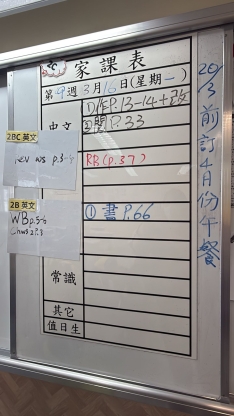 家課表
第19週3月16日(星期一)
中文
D/EP.13-14+改
②閱P.33
2BC 英文
Rev ws p.3-4
RB (p.37)
2B 英文
WB p.5-6
① 書 P.66
常識
其它
值日生
20/3前訂4月份午餐